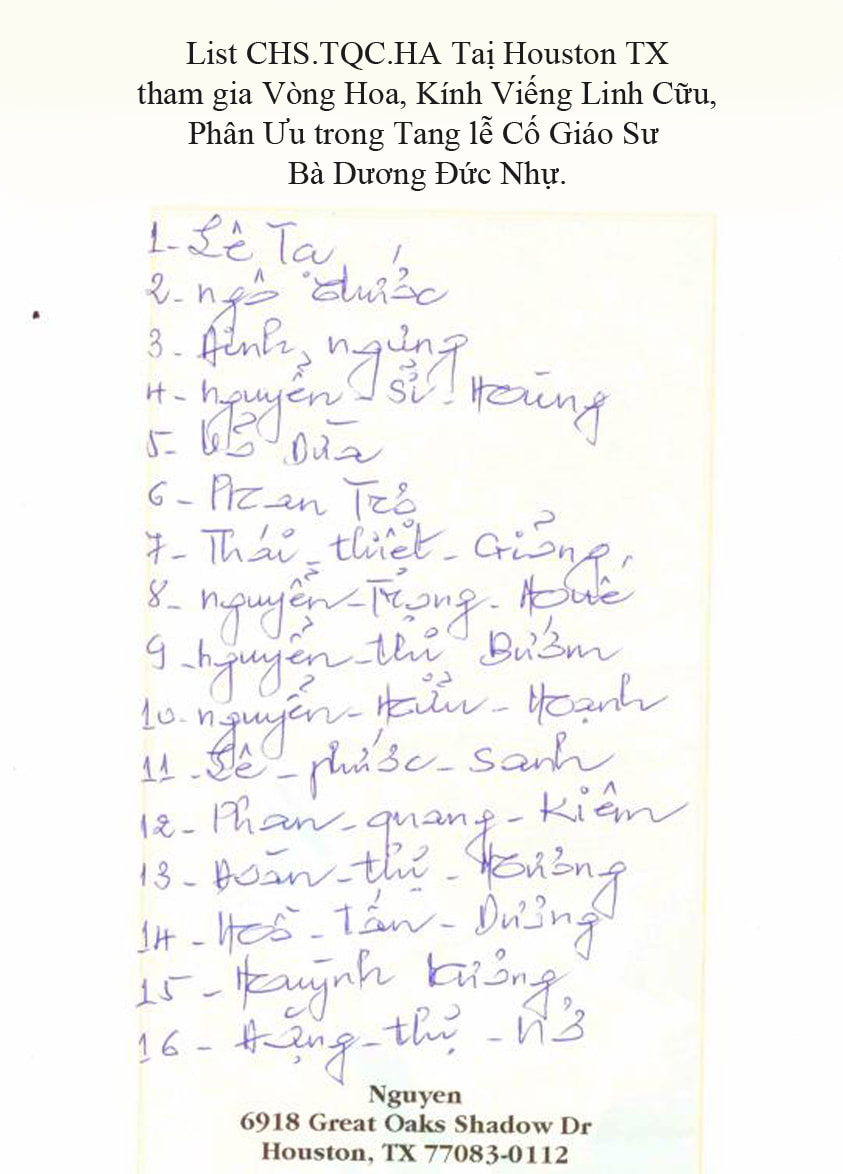 List CHS.TQC.HA Taị Houston TX
tham gia Vòng Hoa, Kính Viếng Linh Cữu,
Phân Ưu trong Tang lễ Cố Giáo Sư
Bà Dương Đức Nhự.
1- Lê Tạ
2- ngô Đước
3- Đinh ngưng
4- nguyển - Sỉ - Hoàng
5- Võ Dừa
6- Phan Trỏ
7- Thái - thiết - Giổng
8- nguyển - Trọng - Huế
9- nguyển - thị Bướm
10- nguyển - Hửu - Hoạnh
11- Lê - phước - Sanh
12- Phan - quang - Kiêm
13- Đoàn - thị - Hương
14- Hồ - Tấn - Dưởng
15- Huỳnh Kưởng
16- Đặng - thị - Nở
Nguyen
6918 Great Oaks Shadow Dr
Houston, TX 77083-0112